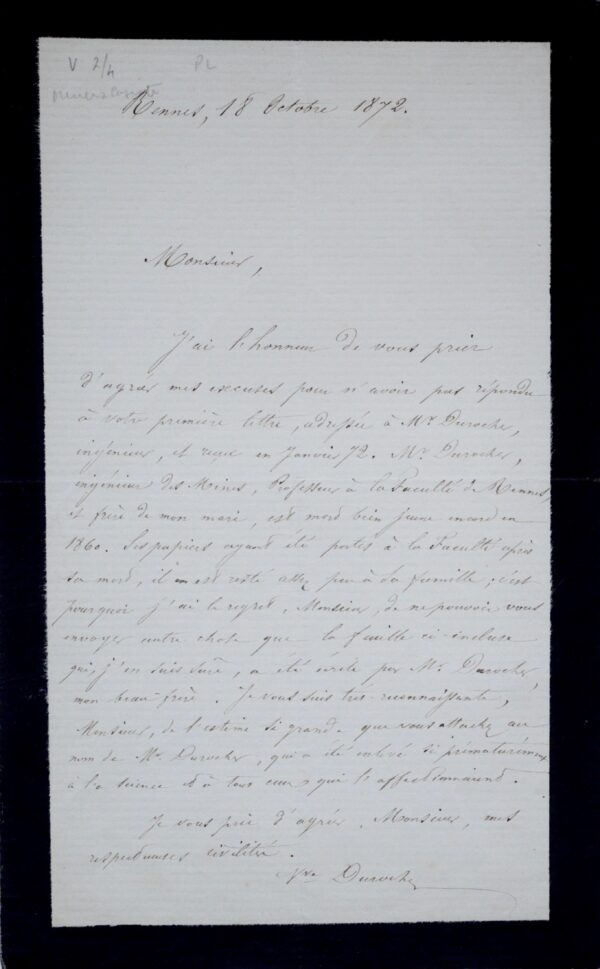 V 2/4
PL
Rennes, 18 Octobre 1872.
Monsieur,
J'ai l'honneur de vous prier
d'agréer mes excuses pour n'avoir pas répondu
à votre première lettre, adressée à Mr Durocher,
ingénieur, et reçue en Janvier 72. Mr Durocher,
ingénieur des Mines, Professeur à la Faculté de Rennes,
et frère de mon mari, est mort bien jeune encore en
1860. Ses papiers ayant été portés à la Faculté après
sa mort, il en est resté assez peu à sa famille ; c'est
pourquoi j'ai le regret, Monsieur, de ne pouvoir vous
envoyer autre chose que la feuille ci-incluse
qui, j'en suis sûre, a été écrite par Mr Durocher,
mon beau-frère. Je vous suis très-reconnaissante,
Monsieur, de l'estime si grande que vous attachez au
nom de Mr Durocher, qui a été enlevé si prématurément
à la science et à tous ceux qui l'affectionnaient.
Je vous prie d'agréer, Monsieur, mes
respectueuses civilités.
Vve Durocher